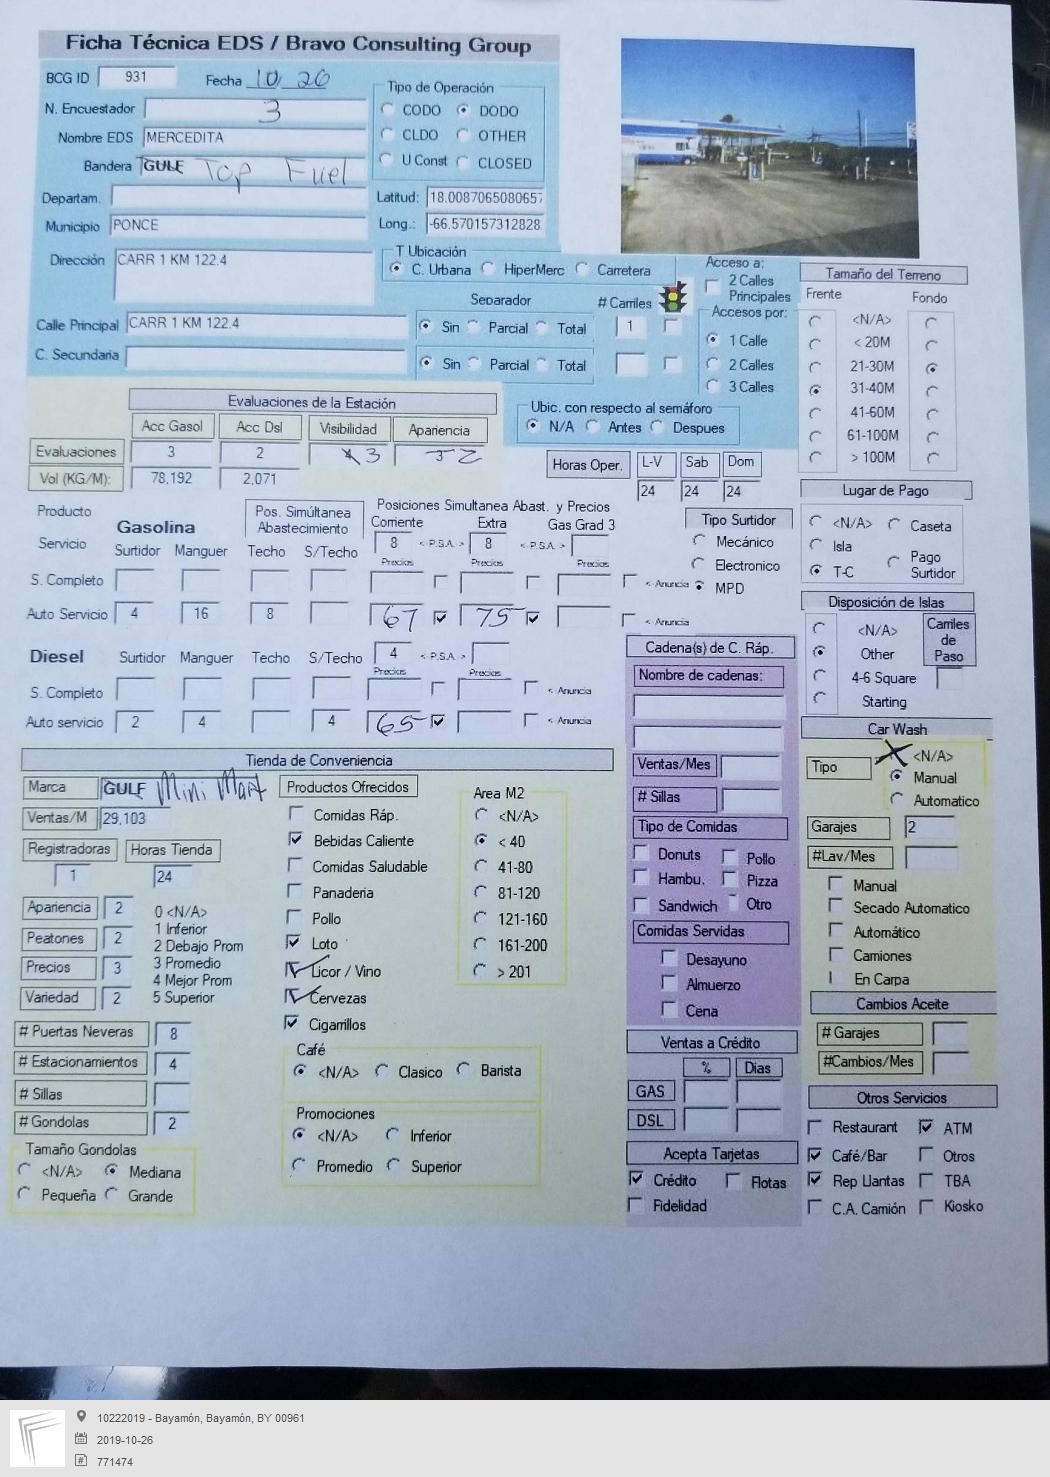 Ficha Técnica EDS / Bravo Consulting Group
BCG ID 931 Fecha 10/26
N. Encuestador 3
Nombre EDS MERCEDITA
Bandera GULF Top Fuel
Departam.
Municipio PONCE
Dirección CARR 1 KM 122.4
Calle Principal CARR 1 KM 122.4
C. Secundaria
Tipo de Operación
CODO DODO
CLDO OTHER
U Const CLOSED
Latitud: 18.0087065080657
Long.: -66.570157312828
T Ubicación
C. Urbana HiperMerc Carretera
Separador # Carriles
Sin Parcial Total 1
Sin Parcial Total
Acceso a:
2 Calles
Principales
Accesos por:
1 Calle
2 Calles
3 Calles
Ubic. con respecto al semáforo
N/A Antes Despues
Tamaño del Terreno
Frente Fondo
<N/A>
< 20M
21-30M
31-40M
41-60M
61-100M
> 100M
Evaluaciones de la Estación
Acc Gasol Acc Dsl Visibilidad Apariencia
Evaluaciones 3 2 3 2
Vol (KG/M): 78,192 2,071
Horas Oper. L-V Sab Dom
24 24 24
Lugar de Pago
<N/A> Caseta
Isla
T-C Pago
Surtidor
Producto
Gasolina
Servicio
Pos. Simúltánea
Abastecimiento
Posiciones Simultanea Abast. y Precios
Corriente Extra Gas Grad 3
8 < P.S.A. > 8 < P.S.A. >
Precios Precios Precios
Surtidor Manguer Techo S/Techo
S. Completo < Anuncia
Auto Servicio 4 16 8 67 75 < Anuncia
Tipo Surtidor
Mecánico
Electronico
MPD
Diesel Surtidor Manguer Techo S/Techo 4 < P.S.A. >
Precios Precios
S. Completo < Anuncia
Auto servicio 2 4 4 65 < Anuncia
Disposición de Islas
<N/A>
Other
4-6 Square
Starting
Carriles
de
Paso
Cadena(s) de C. Ráp.
Nombre de cadenas:
Ventas/Mes
# Sillas
Tipo de Comidas
Donuts Pollo
Hambu. Pizza
Sandwich Otro
Comidas Servidas
Desayuno
Almuerzo
Cena
Ventas a Crédito
% Dias
GAS
DSL
Acepta Tarjetas
Crédito Flotas
Fidelidad
Car Wash
Tipo <N/A>
Manual
Automatico
Garajes 2
#Lav/Mes
Manual
Secado Automatico
Automático
Camiones
En Carpa
Cambios Aceite
# Garajes
#Cambios/Mes
Otros Servicios
Restaurant ATM
Café/Bar Otros
Rep Llantas TBA
C.A. Camión Kiosko
Tienda de Conveniencia
Marca GULF Mini Mart
Ventas/M 29,103
Registradoras Horas Tienda
1 24
Apariencia 2
Peatones 2
Precios 3
Variedad 2
0 <N/A>
1 Inferior
2 Debajo Prom
3 Promedio
4 Mejor Prom
5 Superior
# Puertas Neveras 8
# Estacionamientos 4
# Sillas
# Gondolas 2
Tamaño Gondolas
<N/A> Mediana
Pequeña Grande
Productos Ofrecidos
Comidas Ráp.
Bebidas Caliente
Comidas Saludable
Panaderia
Pollo
Loto
Licor / Vino
Cervezas
Cigarrillos
Area M2
<N/A>
< 40
41-80
81-120
121-160
161-200
> 201
Café
<N/A> Clasico Barista
Promociones
<N/A> Inferior
Promedio Superior
10222019 - Bayamón, Bayamón, BY 00961
2019-10-26
771474